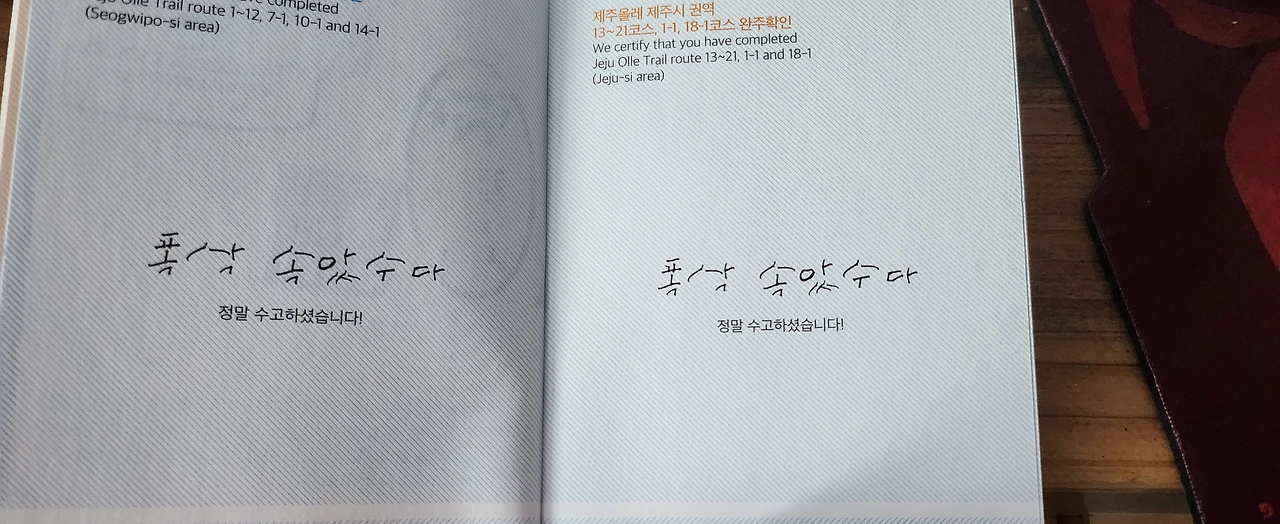 completed
Jeju Olle Trail route 1~12, 7-1, 10-1 and 14-1
(Seogwipo-si area)
폭삭 속았수다
정말 수고하셨습니다!
제주올레 제주시 권역
13~21코스, 1-1, 18-1코스 완주확인
We certify that you have completed
Jeju Olle Trail route 13~21, 1-1 and 18-1
(Jeju-si area)
폭삭 속았수다
정말 수고하셨습니다!